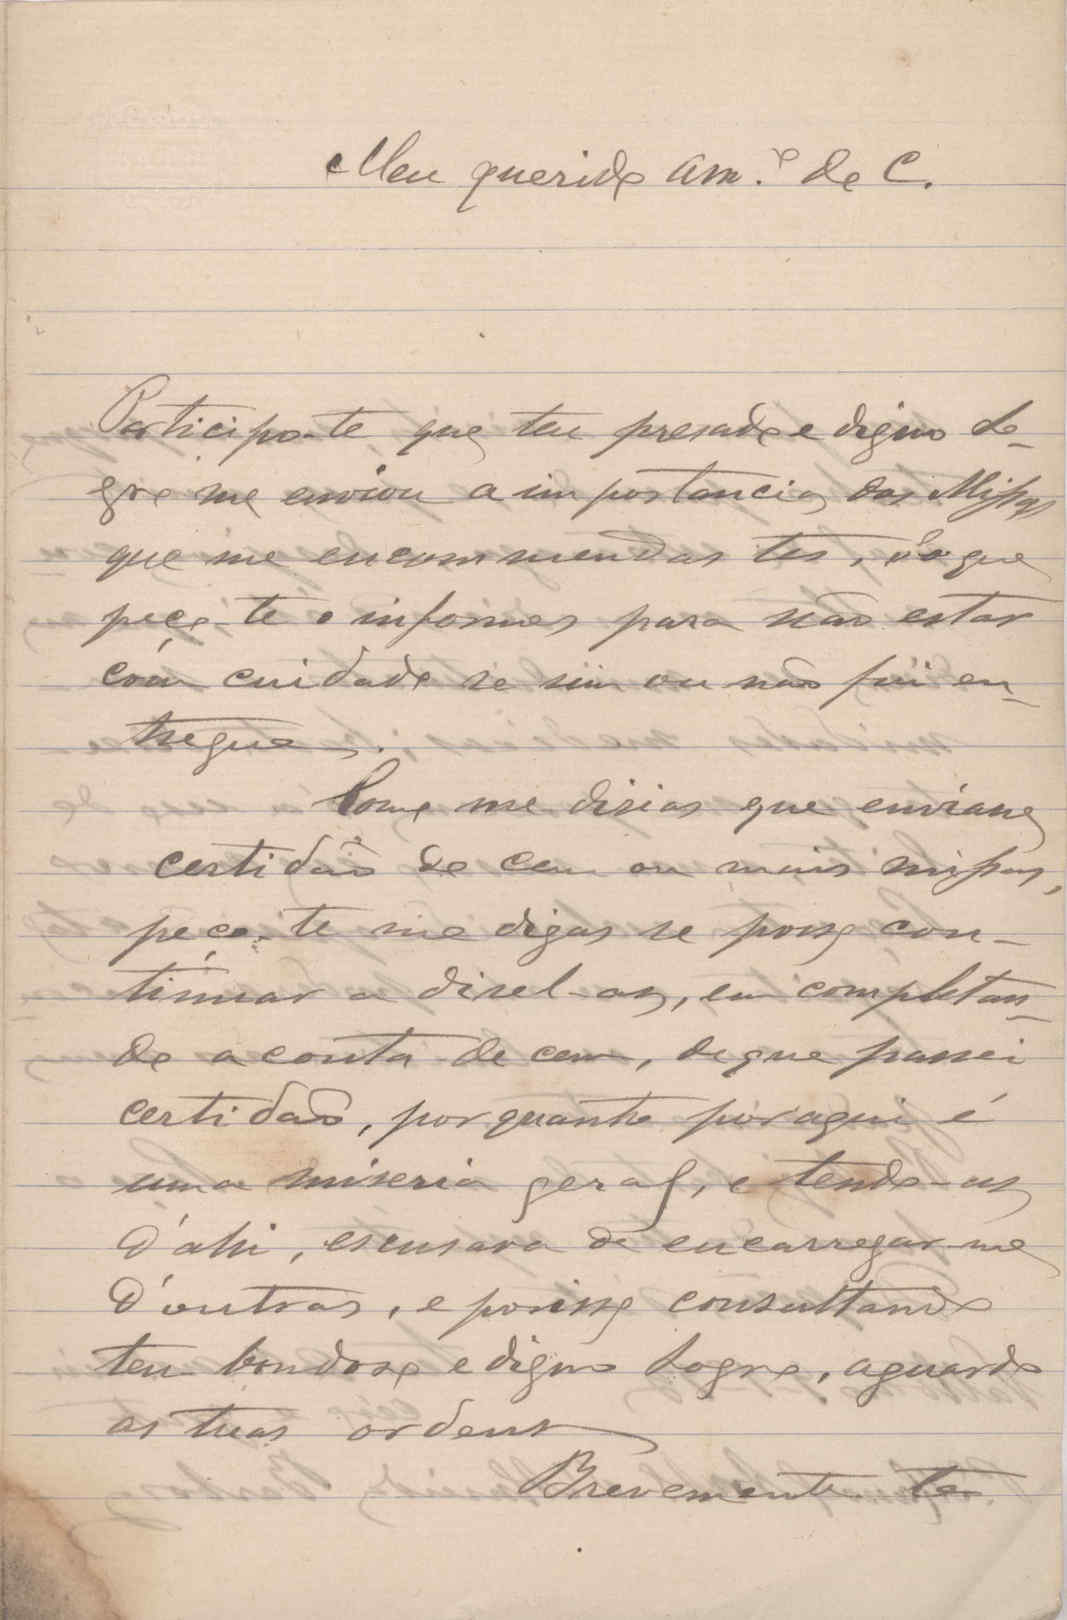 Meu querido Am.º de C.
Participo-te que teu presado e digno So-
gro me enviou a importancia das Missas
que me encommendas tes, o que
peço-te o informes para não estar
com cuidado se sim ou não fui en-
tregue.
Como me dizias que enviasse
certidão de cem ou mais missas,
peço-te me digas se posso con-
tinuar a dizel-as, em completan-
do a conta de cem, de que passei
certidão, por quanto por aqui é
uma miseria geral, e tendo-as
d'ahi, escusava de encarregar-me
d'outras, e por isso consultando
teu bondoso e digno Sogro, aguardo
as tuas ordens
Brevemente te